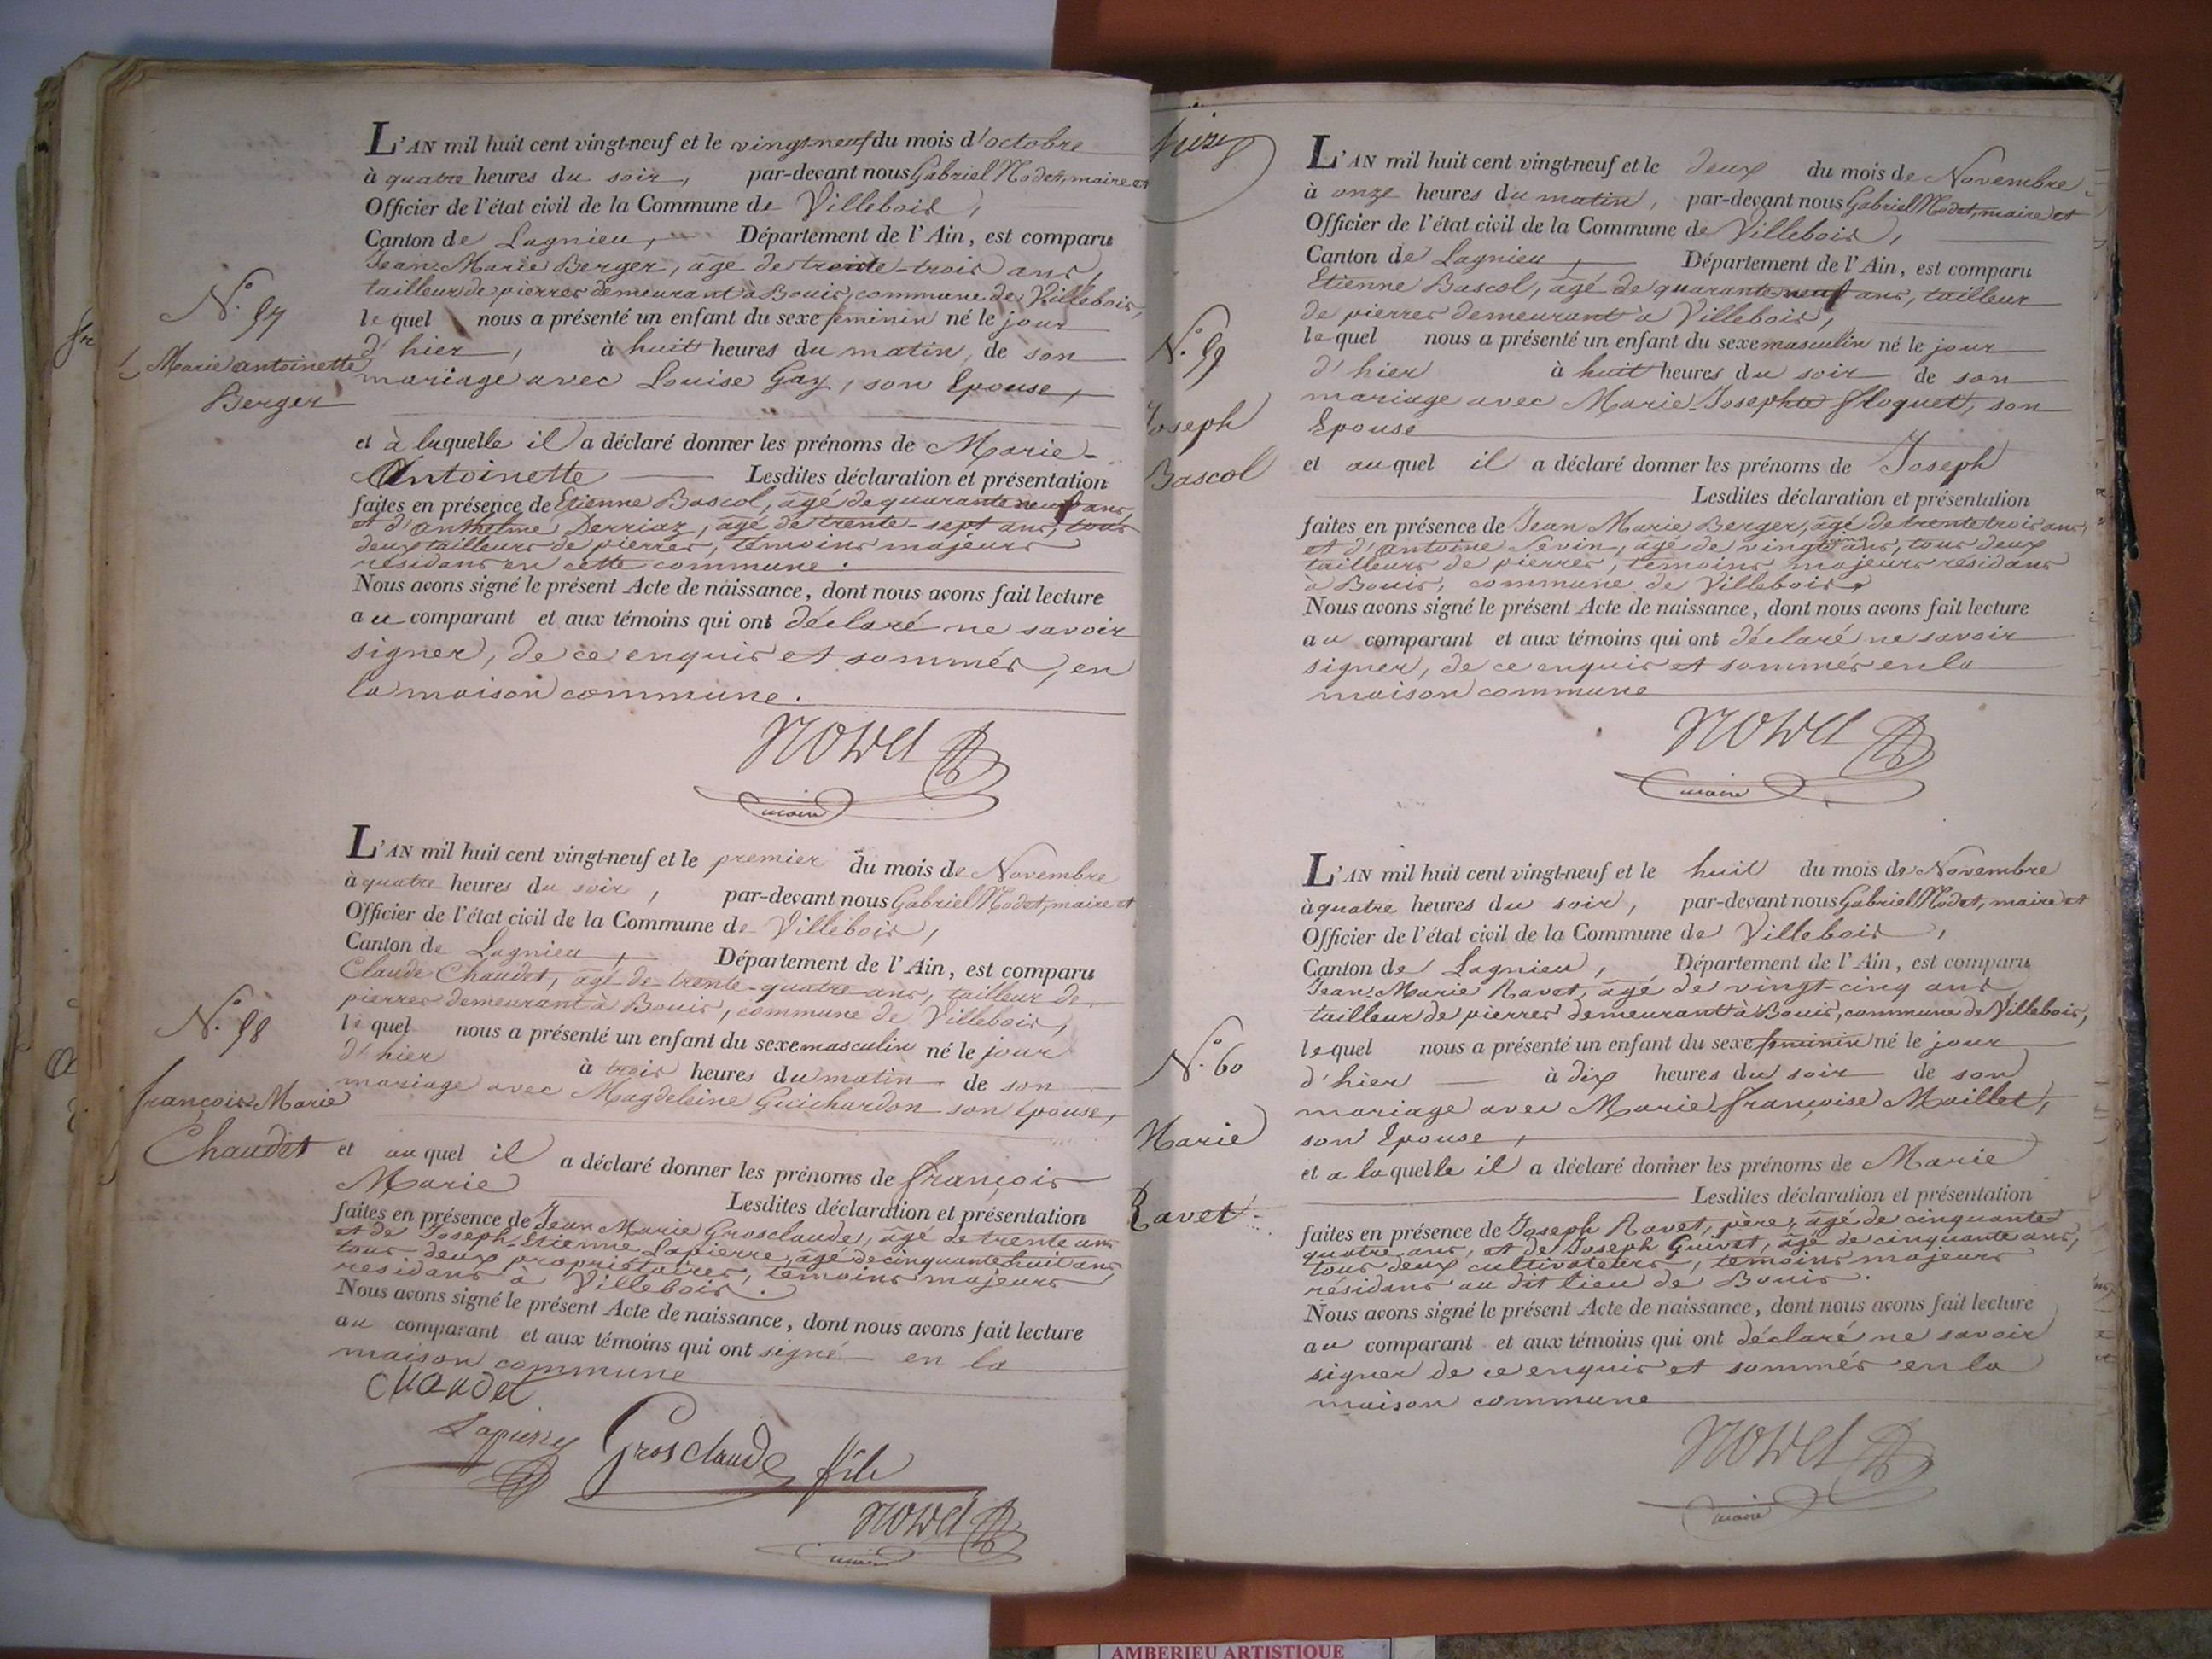 L'AN mil huit cent vingt-neuf et le vingt-neuf du mois d'octobre
à quatre heures du soir, par-devant nous Gabriel Nodet, maire et
Officier de l'état civil de la Commune de Villebois,
Canton de Lagnieu, Département de l'Ain, est comparu
Jean-Marie Berger, âgé de trente-trois ans,
tailleur de pierres demeurant à Bouis, commune de Villebois,
N.° 57
lequel nous a présenté un enfant du sexe feminin né le jour
d'hier, à huit heures du matin, de son
Marie antoinette
Berger
mariage avec Louise Gay, son Epouse,
et à laquelle il a déclaré donner les prénoms de Marie-
Antoinette Lesdites déclaration et présentation
faites en présence de Etienne Bascol, âgé de quarante neuf ans,
et d'anthelme Derriaz, âgé de trente-sept ans, tous
deux tailleurs de pierres, témoins majeurs
résidans en cette commune.
Nous avons signé le présent Acte de naissance, dont nous avons fait lecture
au comparant et aux témoins qui ont déclaré ne savoir
signer, de ce enquis et sommés, en
la maison commune.
maire
L'AN mil huit cent vingt-neuf et le premier du mois de Novembre
à quatre heures du soir, par-devant nous Gabriel Nodet, maire et
Officier de l'état civil de la Commune de Villebois,
Canton de Lagnieu, Département de l'Ain, est comparu
Claude Chaudet, âgé de trente-quatre ans, tailleur de
pierres demeurant à Bouis, commune de Villebois,
N.° 58
lequel nous a présenté un enfant du sexe masculin né le jour
d'hier à trois heures du matin de son
françois-Marie
Chaudet
mariage avec Magdeleine Guichardon son épouse,
et auquel il a déclaré donner les prénoms de françois
Marie Lesdites déclaration et présentation
faites en présence de Jean Marie Grosclaude, âgé de trente ans
et de Joseph-Etienne Lapierre, âgé de cinquante huit ans,
tous deux propriétaires, témoins majeurs
résidans à Villebois.
Nous avons signé le présent Acte de naissance, dont nous avons fait lecture
au comparant et aux témoins qui ont signé en la
maison commune
Chaudet
Lapierre Grosclaude fils
maire
L'AN mil huit cent vingt-neuf et le deux du mois de Novembre
à onze heures du matin, par-devant nous Gabriel Nodet, maire et
Officier de l'état civil de la Commune de Villebois,
Canton de Lagnieu, Département de l'Ain, est comparu
Etienne Bascol, âgé de quarante-neuf ans, tailleur
de pierres demeurant à Villebois,
N.° 59
lequel nous a présenté un enfant du sexe masculin né le jour
d'hier à huit heures du soir de son
Joseph
Bascol
mariage avec Marie-Josephte floquet, son
Epouse
et auquel il a déclaré donner les prénoms de Joseph
Lesdites déclaration et présentation
faites en présence de Jean Marie Berger, âgé de trente trois ans,
et d'antoine Sevin, âgé de vingt ans, tous deux
tailleurs de pierres, témoins majeurs résidans
à Bouis, commune de Villebois.
Nous avons signé le présent Acte de naissance, dont nous avons fait lecture
au comparant et aux témoins qui ont déclaré ne savoir
signer, de ce enquis et sommés en la
maison commune
maire
L'AN mil huit cent vingt-neuf et le huit du mois de Novembre
à quatre heures du soir, par-devant nous Gabriel Nodet, maire et
Officier de l'état civil de la Commune de Villebois,
Canton de Lagnieu, Département de l'Ain, est comparu
Jean-Marie Ravet, âgé de vingt-cinq ans
tailleur de pierres demeurant à Bouis, commune de Villebois,
N.° 60
lequel nous a présenté un enfant du sexe feminin né le jour
d'hier à dix heures du soir de son
Marie
Ravet
mariage avec Marie françoise Maillet,
son Epouse,
et a laquelle il a déclaré donner les prénoms de Marie
Lesdites déclaration et présentation
faites en présence de Joseph Ravet, père, âgé de cinquante
quatre ans, et de Joseph Guivet, âgé de cinquante ans,
tous deux cultivateurs, témoins majeurs
résidans au dit lieu de Bouis.
Nous avons signé le présent Acte de naissance, dont nous avons fait lecture
au comparant et aux témoins qui ont déclaré ne savoir
signer de ce enquis et sommés en la
maison commune
maire
AMBERIEU ARTISTIQUE